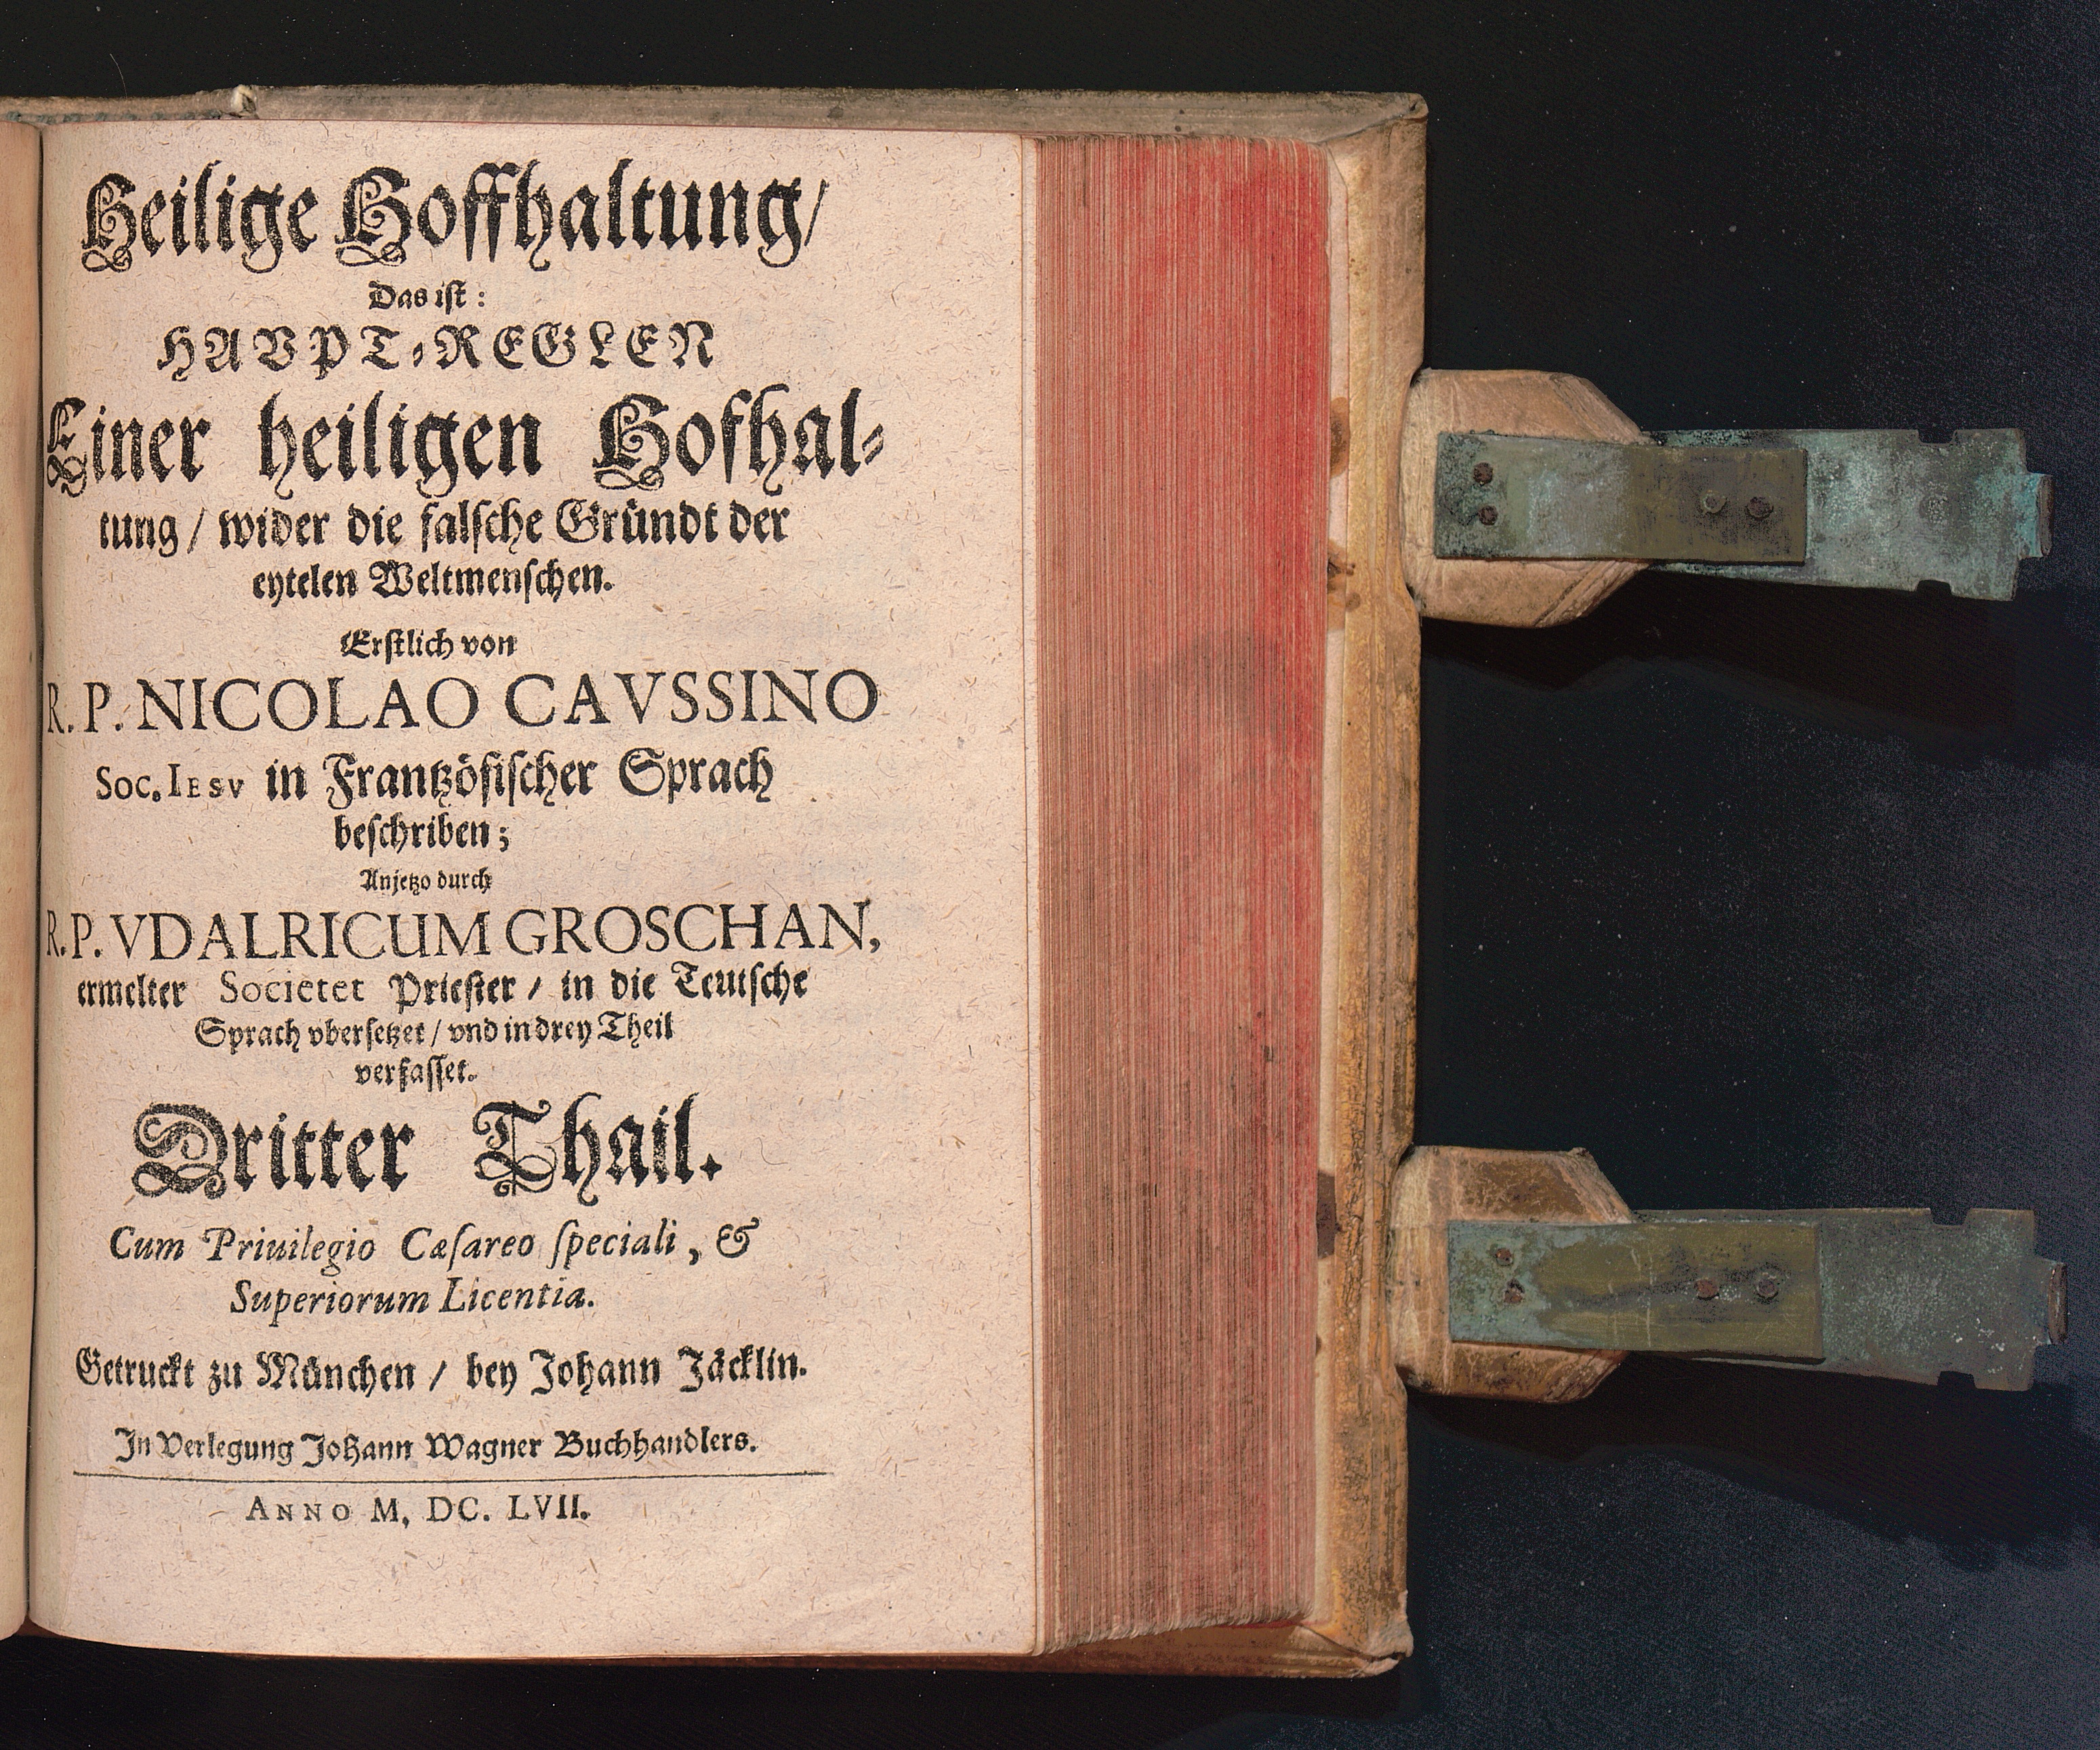 Heilige Hoffhaltung/
Das ist:
HAVPT-REGLEN
Einer heiligen Hofhal-
tung / wider die falsche Gründt der
eytelen Weltmenschen.
Erstlich von
R. P. NICOLAO CAVSSINO
Soc. IESV in Frantzösischer Sprach
beschriben;
Anjetzo durch
R. P. VDALRICUM GROSCHAN,
ermelter Societet Priester / in die Teutsche
Sprach vbersetzet / vnd in drey Theil
verfasset.
Dritter Thail.
Cum Priuilegio Cæsareo speciali, &
Superiorum Licentia.
Getruckt zu München / bey Johann Jäcklin.
In Verlegung Johann Wagner Buchhandlers.
ANNO M, DC. LVII.